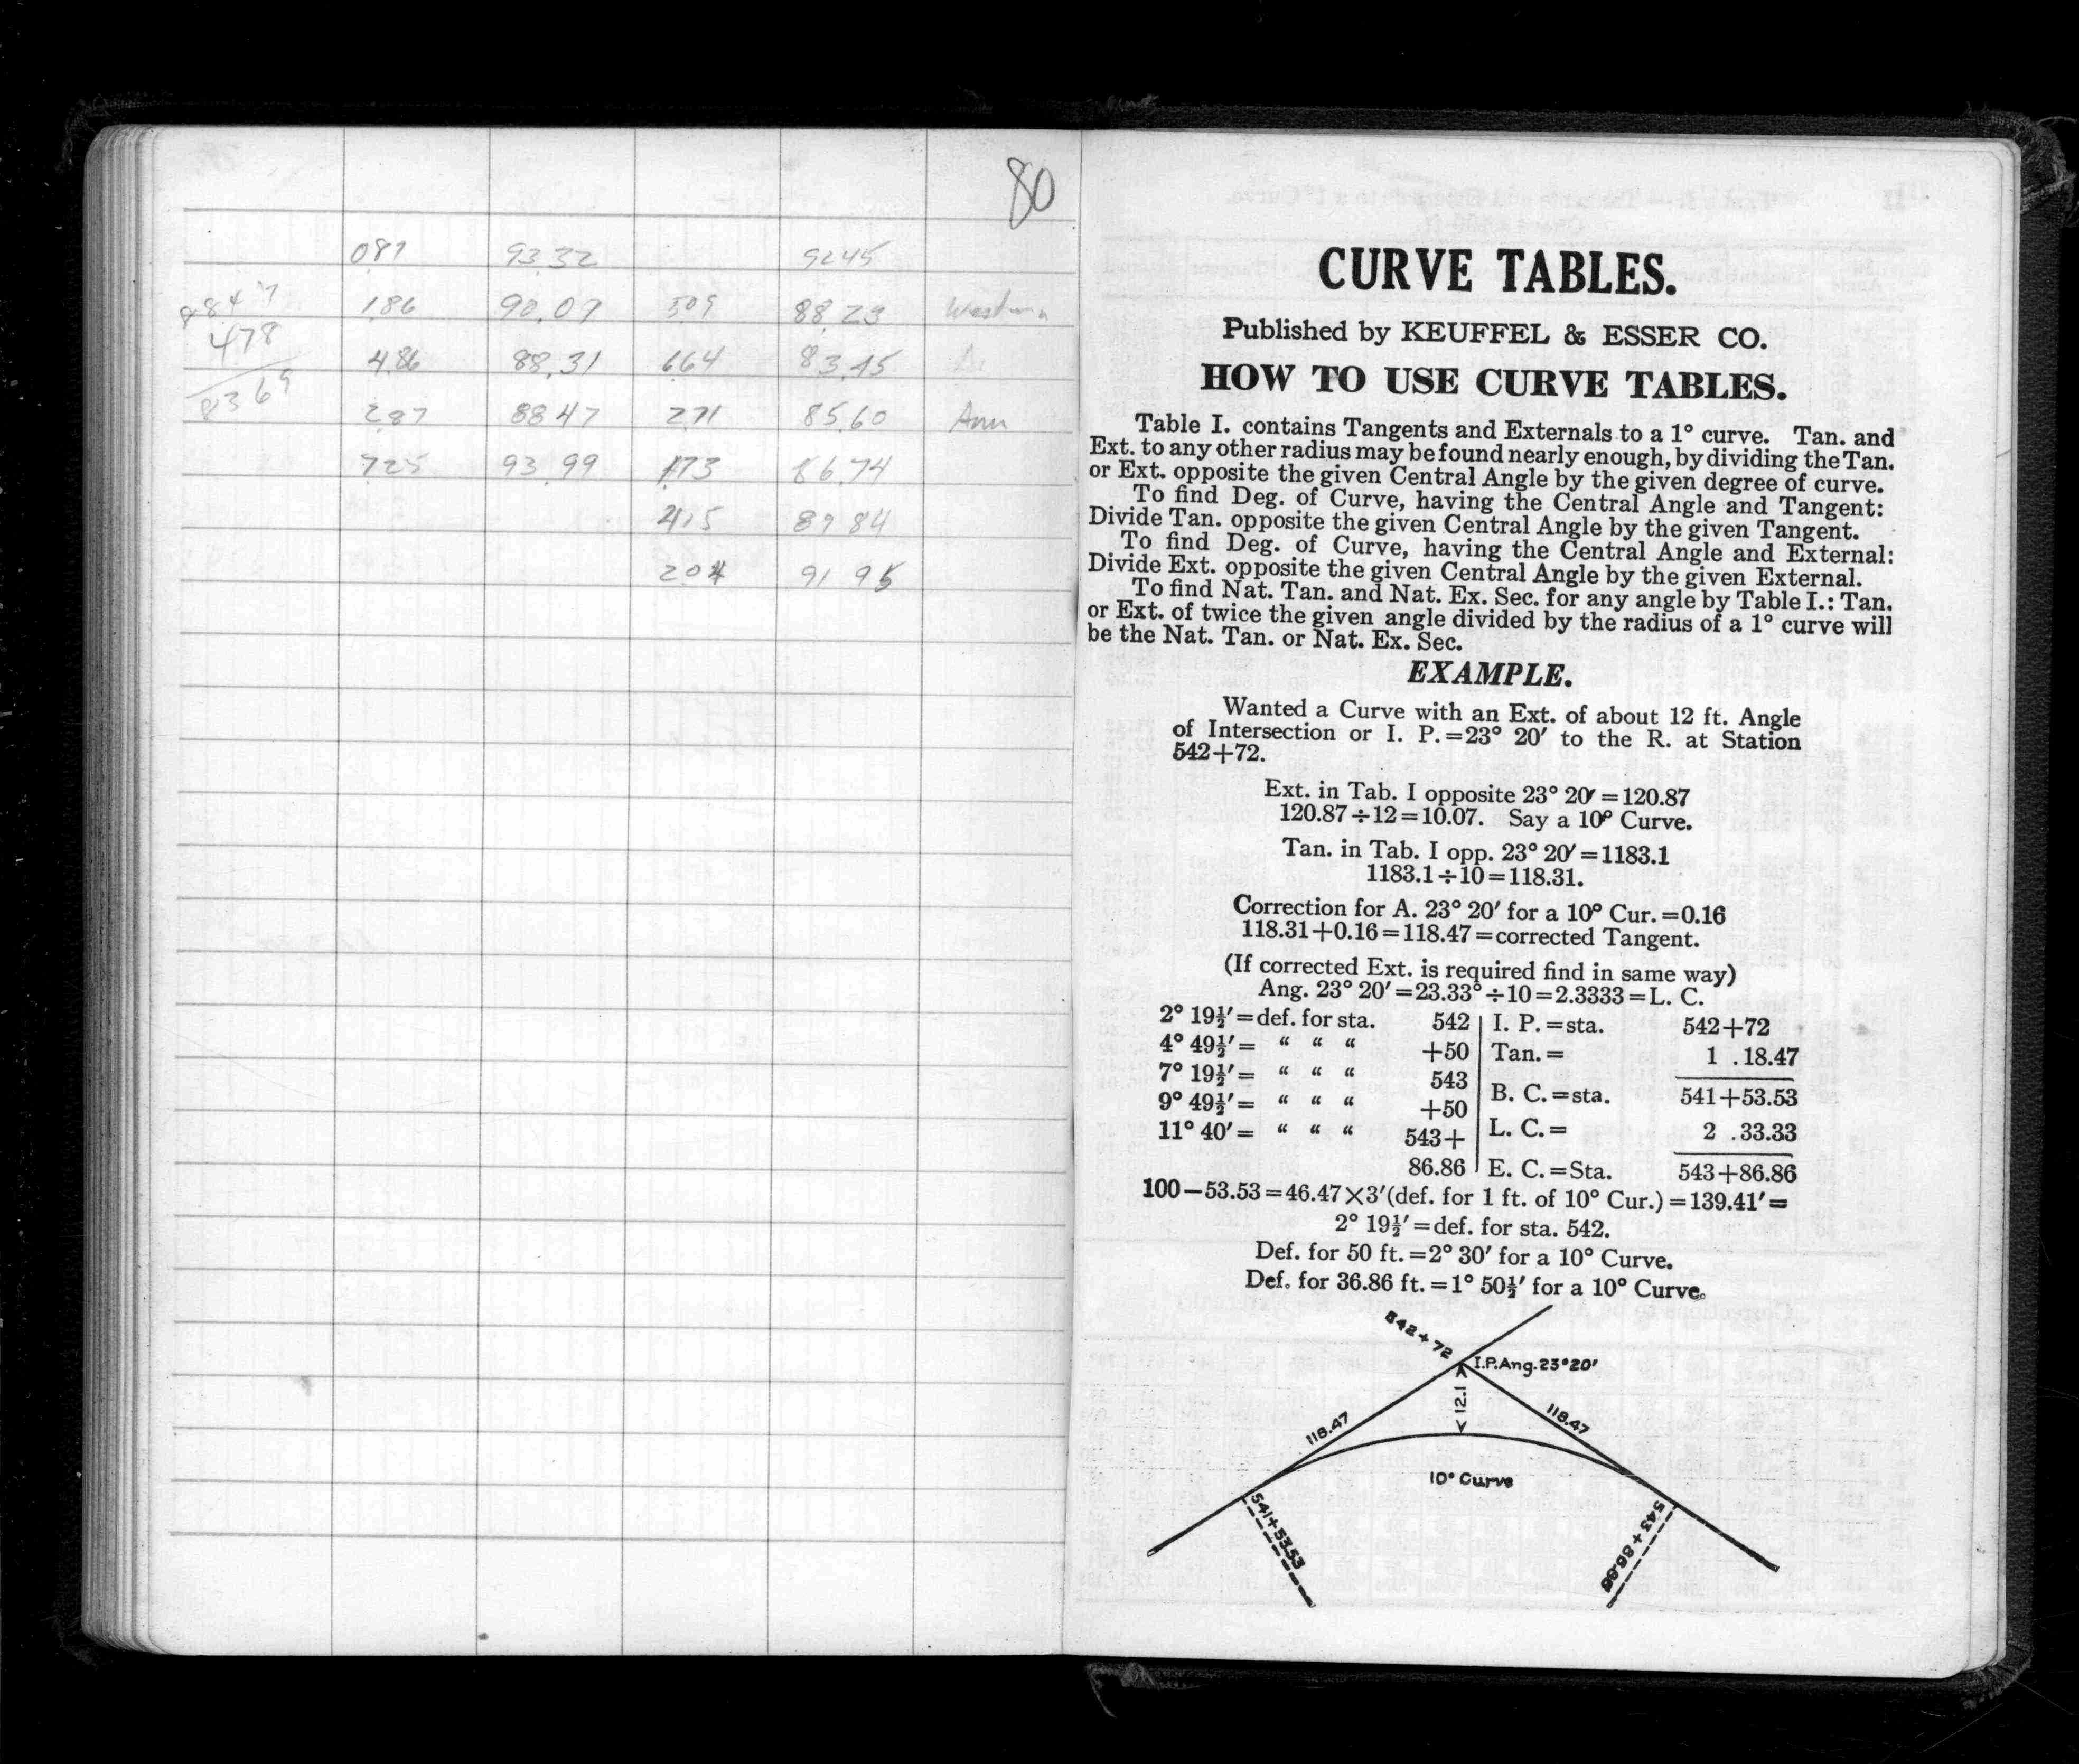 80
087 93.32 92 45
884 7 1.86 90.07 509 88.23
478 4.86 88.31 664 83.45
83 69 2.87 88 47 271 85.60 Ann
725 93.99 173 86.74
415 89 84
204 91 95
CURVE TABLES.
Published by KEUFFEL & ESSER CO.
HOW TO USE CURVE TABLES.
Table I. contains Tangents and Externals to a 1° curve. Tan. and
Ext. to any other radius may be found nearly enough, by dividing the Tan.
or Ext. opposite the given Central Angle by the given degree of curve.
To find Deg. of Curve, having the Central Angle and Tangent:
Divide Tan. opposite the given Central Angle by the given Tangent.
To find Deg. of Curve, having the Central Angle and External:
Divide Ext. opposite the given Central Angle by the given External.
To find Nat. Tan. and Nat. Ex. Sec. for any angle by Table I.: Tan.
or Ext. of twice the given angle divided by the radius of a 1° curve will
be the Nat. Tan. or Nat. Ex. Sec.
EXAMPLE.
Wanted a Curve with an Ext. of about 12 ft. Angle
of Intersection or I. P.=23° 20′ to the R. at Station
542+72.
Ext. in Tab. I opposite 23° 20′=120.87
120.87÷12=10.07. Say a 10° Curve.
Tan. in Tab. I opp. 23° 20′=1183.1
1183.1÷10=118.31.
Correction for A. 23° 20′ for a 10° Cur.=0.16
118.31+0.16=118.47=corrected Tangent.
(If corrected Ext. is required find in same way)
Ang. 23° 20′=23.33°÷10=2.3333=L. C.
2° 19½′=def. for sta. 542 I. P.=sta. 542+72
4° 49½′= “ “ “ +50 Tan.= 1 .18.47
7° 19½′= “ “ “ 543
B. C.=sta. 541+53.53
9° 49½′= “ “ “ +50
11° 40′= “ “ “ 543+ L. C.= 2 .33.33
86.86 E. C.=Sta. 543+86.86
100−53.53=46.47×3′(def. for 1 ft. of 10° Cur.)=139.41′=
2° 19½′=def. for sta. 542.
Def. for 50 ft.=2° 30′ for a 10° Curve.
Def. for 36.86 ft.=1° 50½′ for a 10° Curve.
542+72
I.P.Ang.23°20′
12.1
118.47
118.47
10° Curve
541+53.53
543+86.86